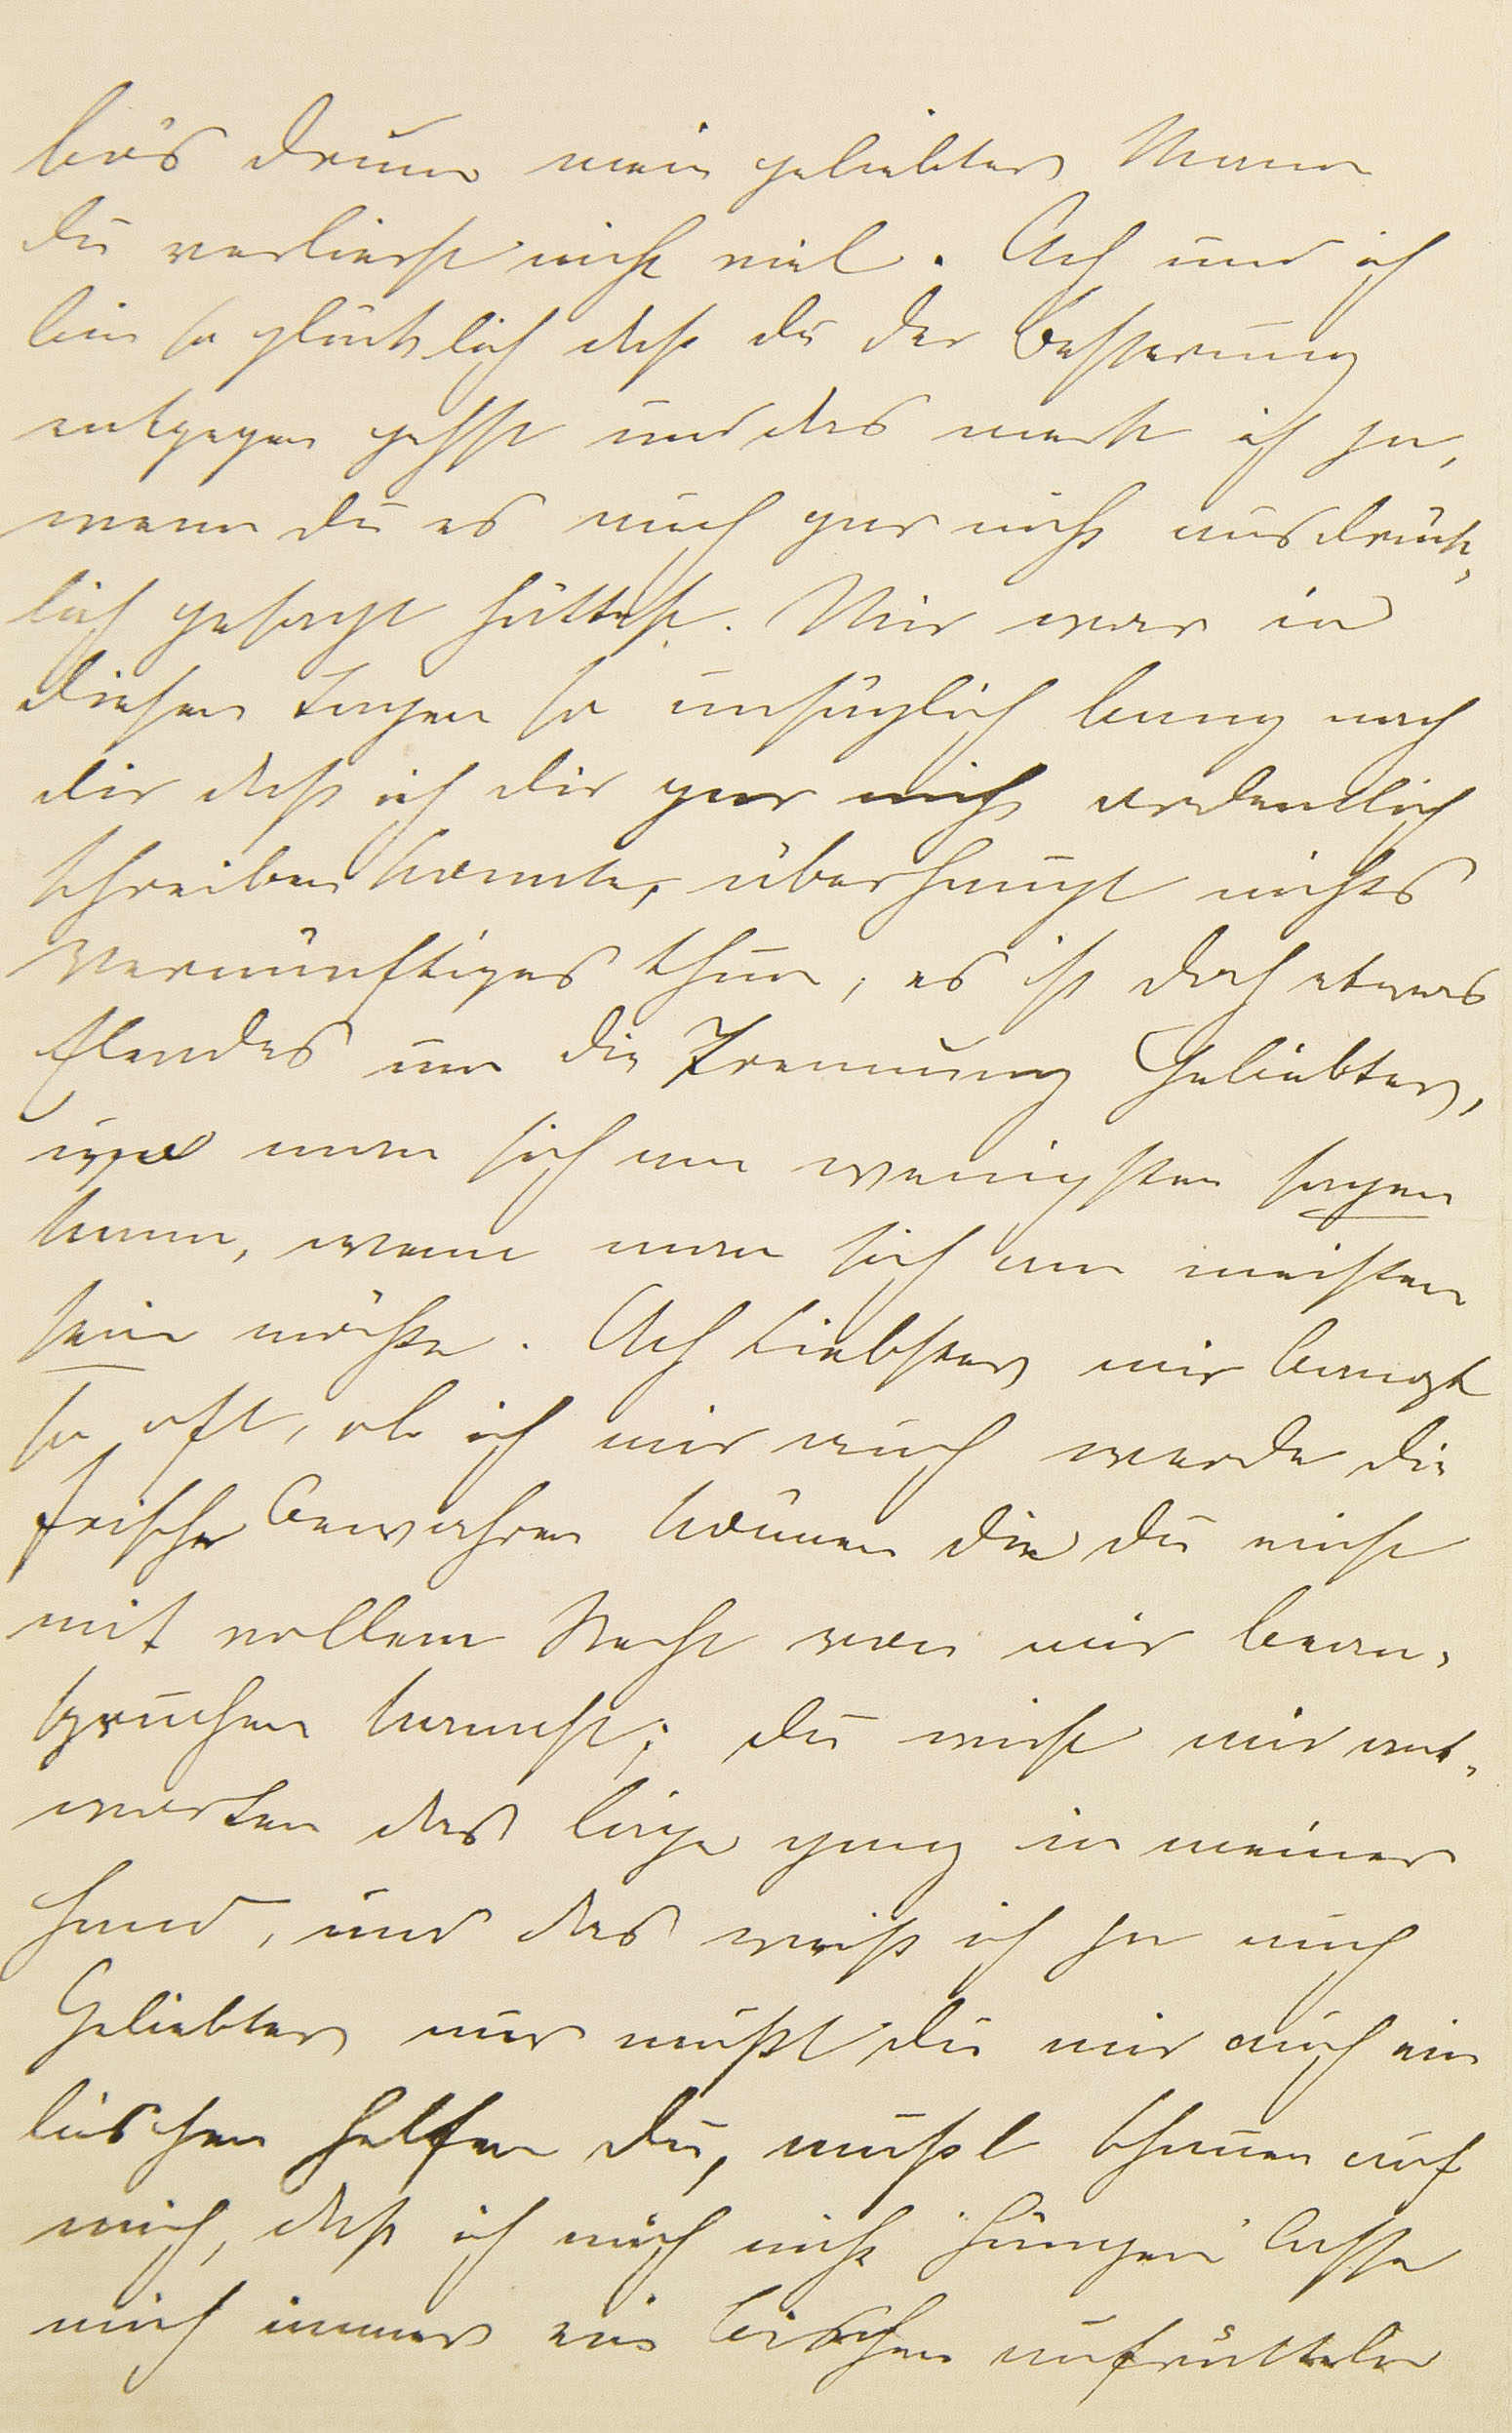 bös drum mein geliebter Mann
du verlierst nicht viel. Ach und ich
bin so glücklich daß du der Besserung
entgegen gehst und das merk ich ja,
wenn du es auch gar nicht ausdrück-
lich gesagt hättest. Mir war in
diesen Tagen so unsäglich bang nach
dir daß ich dir gar nicht ordentlich
schreiben konnte, überhaupt nichts
Vernünftiges thun, es ist doch etwas
Elendes um die Trennung Geliebter,
wo man sich am wenigsten sagen
kann, wenn man sich am meisten
sein möchte. Ach Liebster mir bangt
so oft, ob ich mir auch werde die
Frische bewahren können die du einst
mit vollem Recht von mir bean-
spruchen kannst; du wirst mir ant-
worten das liege ganz in meiner
Hand, und das weiß ich ja auch
Geliebter nur mußt du mir auch ein
bischen helfen du, mußt schauen auf
mich, daß ich mich nicht hängen lasse
mich immer ein bischen aufrütteln